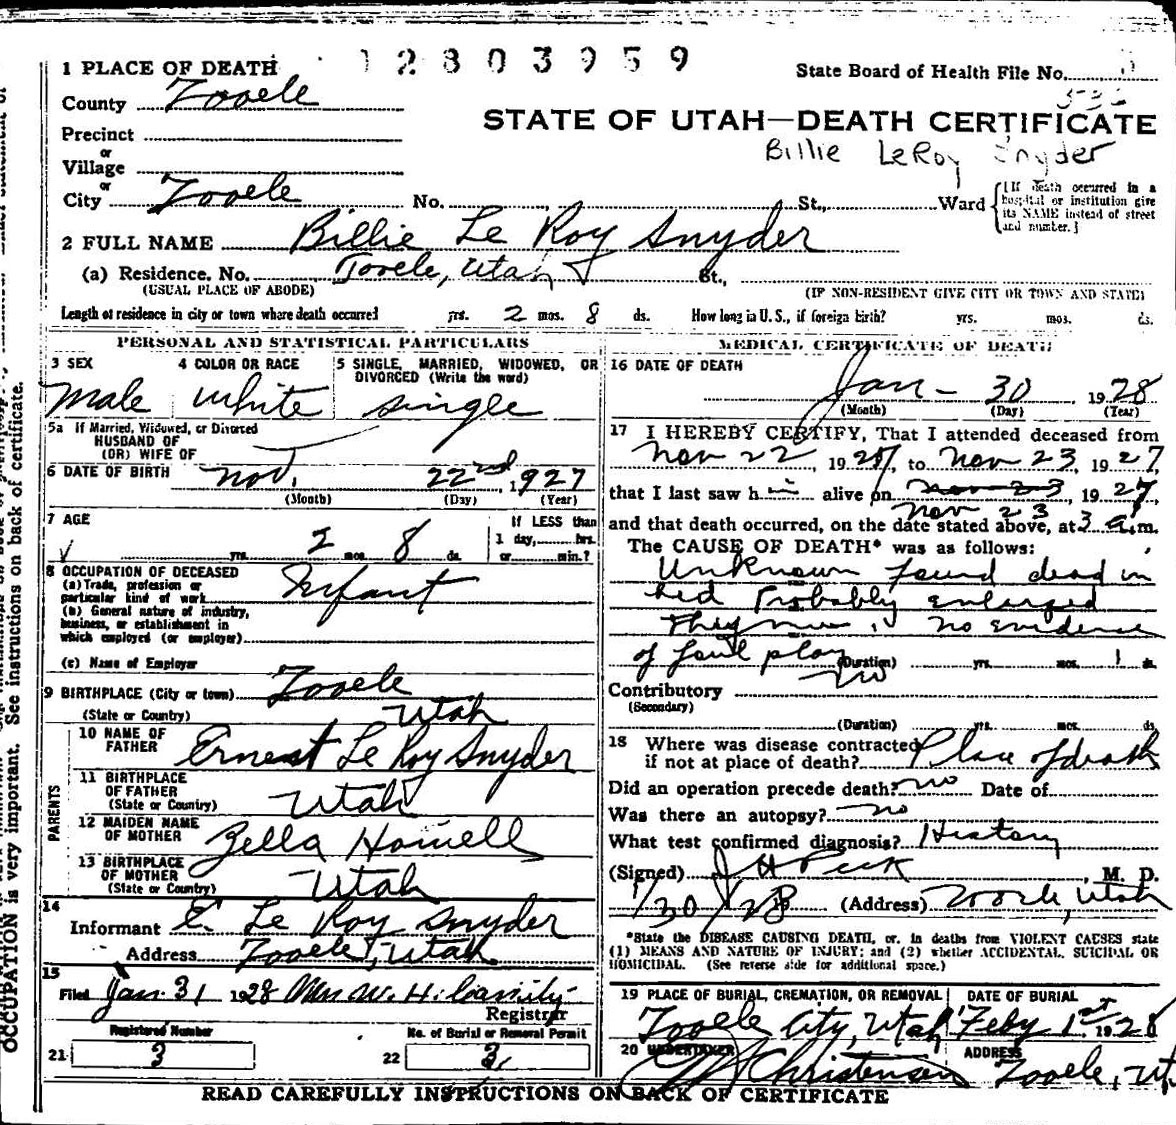 1 PLACE OF DEATH 12803959 State Board of Health File No.
County Tooele
STATE OF UTAH—DEATH CERTIFICATE
Precinct
or
Billie LeRoy Snyder
Village
or
City Tooele No. St., Ward {[If death occurred in a hospital or institution give its NAME instead of street and number.]
2 FULL NAME Billie Le Roy Snyder
(a) Residence. No. Tooele, Utah St.,
(USUAL PLACE OF ABODE) (IF NON-RESIDENT GIVE CITY OR TOWN AND STATE)
Length of residence in city or town where death occurred yrs. 2 mos. 8 ds. How long in U. S., if foreign birth? yrs. mos. ds.
PERSONAL AND STATISTICAL PARTICULARS
3 SEX 4 COLOR OR RACE 5 SINGLE, MARRIED, WIDOWED, OR
DIVORCED (Write the word)
male white single
5a If Married, Widowed, or Divorced
HUSBAND OF
(OR) WIFE OF
6 DATE OF BIRTH Nov. 22nd, 1927
(Month) (Day) (Year)
7 AGE If LESS than
2 8 1 day, hrs.
yrs. mos. ds. or min.?
8 OCCUPATION OF DECEASED
(a) Trade, profession or
particular kind of work Infant
(b) General nature of industry,
business, or establishment in
which employed (or employer)
(c) Name of Employer
9 BIRTHPLACE (City or town) Tooele
(State or Country) Utah
PARENTS
10 NAME OF
FATHER Ernest Le Roy Snyder
11 BIRTHPLACE
OF FATHER
(State or Country) Utah
12 MAIDEN NAME
OF MOTHER Zella Howell
13 BIRTHPLACE
OF MOTHER
(State or Country) Utah
14
Informant E. Le Roy Snyder
Address Tooele, Utah
15
Filed Jan. 31 1928 Mrs W. H.
Registrar
Registered Number No. of Burial or Removal Permit
21 3 22 3
MEDICAL CERTIFICATE OF DEATH
16 DATE OF DEATH
Jan - 30 1928
(Month) (Day) (Year)
17 I HEREBY CERTIFY, That I attended deceased from
Nov 22, 1927, to Nov 23, 1927,
that I last saw him alive on Nov 23, 1927,
Nov 23
and that death occurred, on the date stated above, at 3 a.m.
The CAUSE OF DEATH* was as follows:
Unknown found dead in
bed Probably enlarged
Thymus, no evidence
of foul play
(Duration) yrs. mos. 1 ds.
Contributory no
(Secondary)
(Duration) yrs. mos. ds.
18 Where was disease contracted
if not at place of death? Place of death
Did an operation precede death? no Date of
Was there an autopsy? no
What test confirmed diagnosis? History
(Signed) J H Peck, M. D.
1/30/28 (Address) Tooele, Utah
*State the DISEASE CAUSING DEATH, or, in deaths from VIOLENT CAUSES state
(1) MEANS AND NATURE OF INJURY; and (2) whether ACCIDENTAL, SUICIDAL OR
HOMICIDAL. (See reverse side for additional space.)
19 PLACE OF BURIAL, CREMATION, OR REMOVAL DATE OF BURIAL
Tooele City, Utah Feby 1st 1928
20 UNDERTAKER ADDRESS
Christensen Tooele, Ut.
READ CAREFULLY INSTRUCTIONS ON BACK OF CERTIFICATE
OCCUPATION is very important. See instructions on back of certificate.